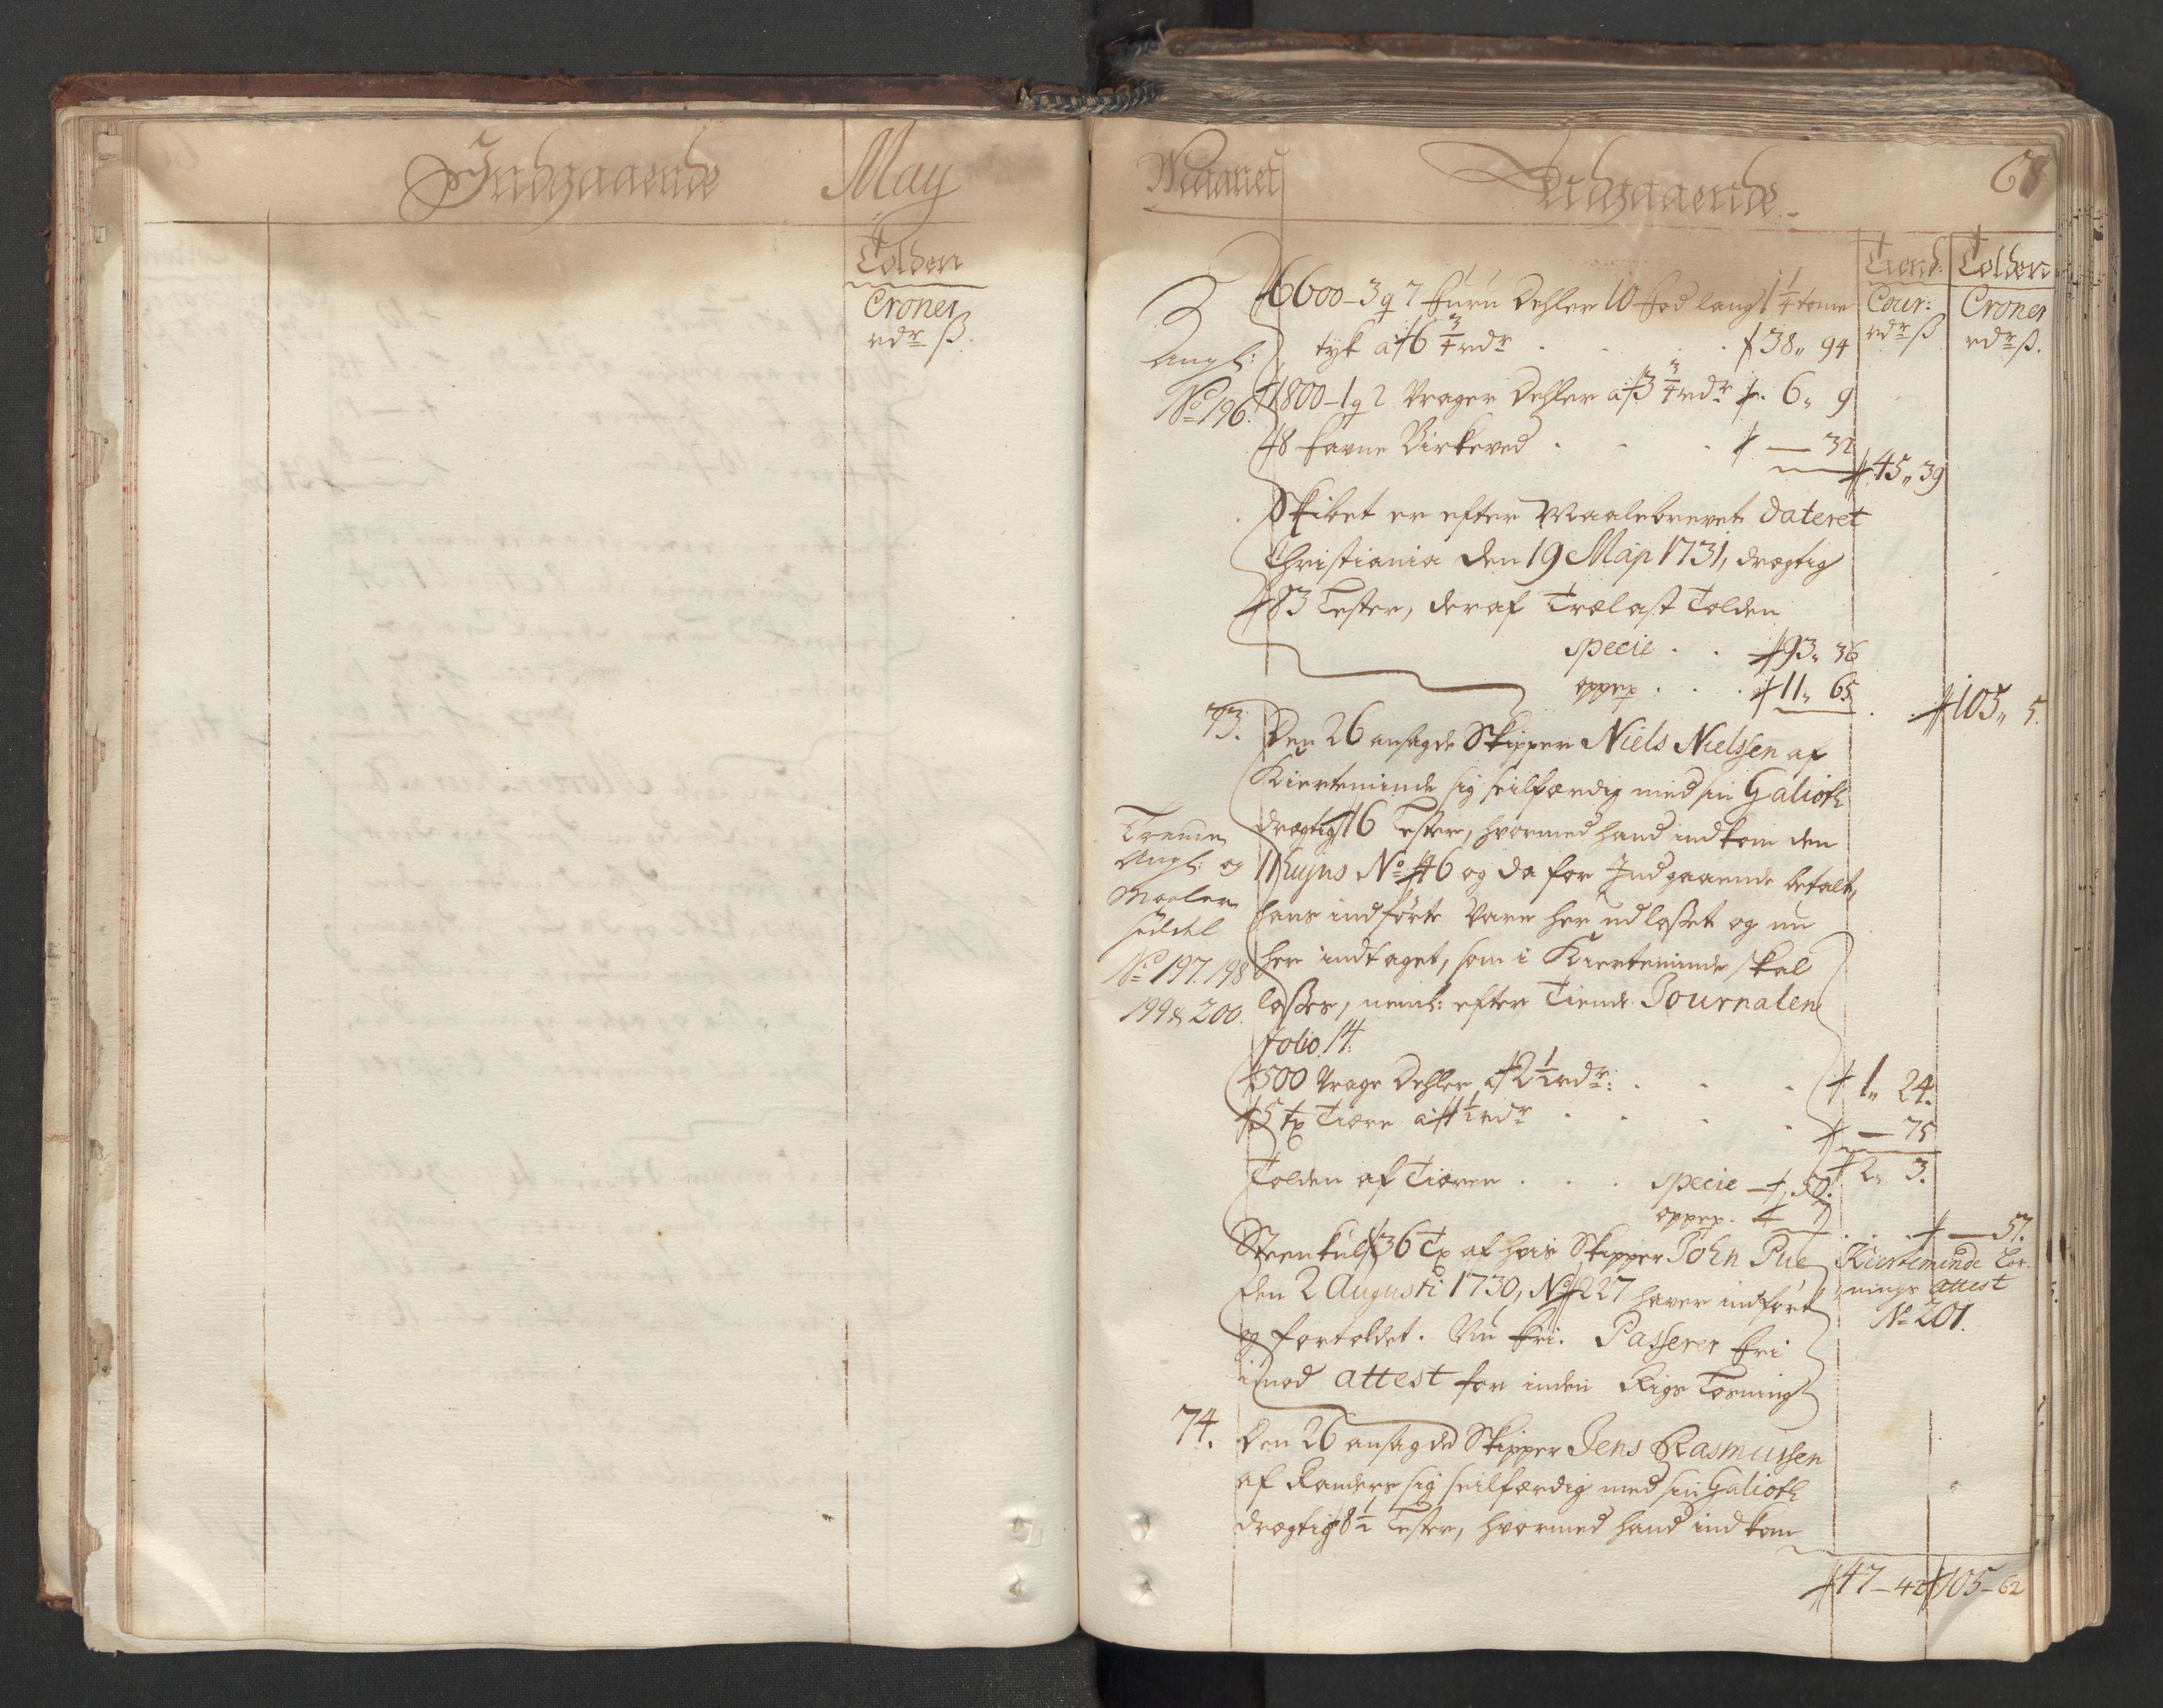 Indgaaende May
Tolden
Croner
rdr ß.
Maanet Udgaaende 68
Tiend: Tolden
Cour: Croner
rdr ß rdr ß.
6600-3 q 7 furu Dehler 10 fod lang 1 1/4 tome
tyk a 6 3/4 rdr . . . 38,, 94
Angf:
No 196.
1800-1 q 2 Vrager Dehler a 3 3/4 rdr 6,, 9
8 favne Birkeved . . . — 32
45,, 39
Skibet er efter Maalebrevet Dateret
Christiania den 19 Maji 1731, drægtig
83 Lester, deraf Trælast Tolden
specie . . 93,, 36
oppep . . . 11,, 65
105,, 5.
73. Den 26 ansagde Skipper Niels Nielssen af
Kierteminde sig seilfærdig med sin Galioth
drægtig 16 Lester, hvormed hand indkom den
11 hujus No 46 og da for Indgaaende betalt,
hans indførte Vare her udlosset og nu
her indtaget, som i Kierteminde skal
losses, neml: efter Tiende Journalen
folio 14.
Trende
Angf: og
Maaler
Seddel
No 197. 198
199 & 200.
500 Vrage Dehler a 2 1/2 rdr: . . . 1,, 24.
5 tr Tiære a 1 1/2 rdr . . . — 75
2,, 3.
Tolden af Tiæren . . . specie 50.
oppep. 7
— 57.
Steenkul 36 Tr af hvis Skipper John Pue
den 2 Augusti 1730, No 227 haver indført
og fortoldet. Nu fri. Passerer fri
imod attest for inden Rigs Losning
Kierteminde Los-
nings attest
No 201.
74. Den 26 ansagde Skipper Jens Rasmussen
af Randers sig seilfærdig med sin Galioth
drægtig 8 1/2 Lester, hvormed hand indkom
47-42 105-62